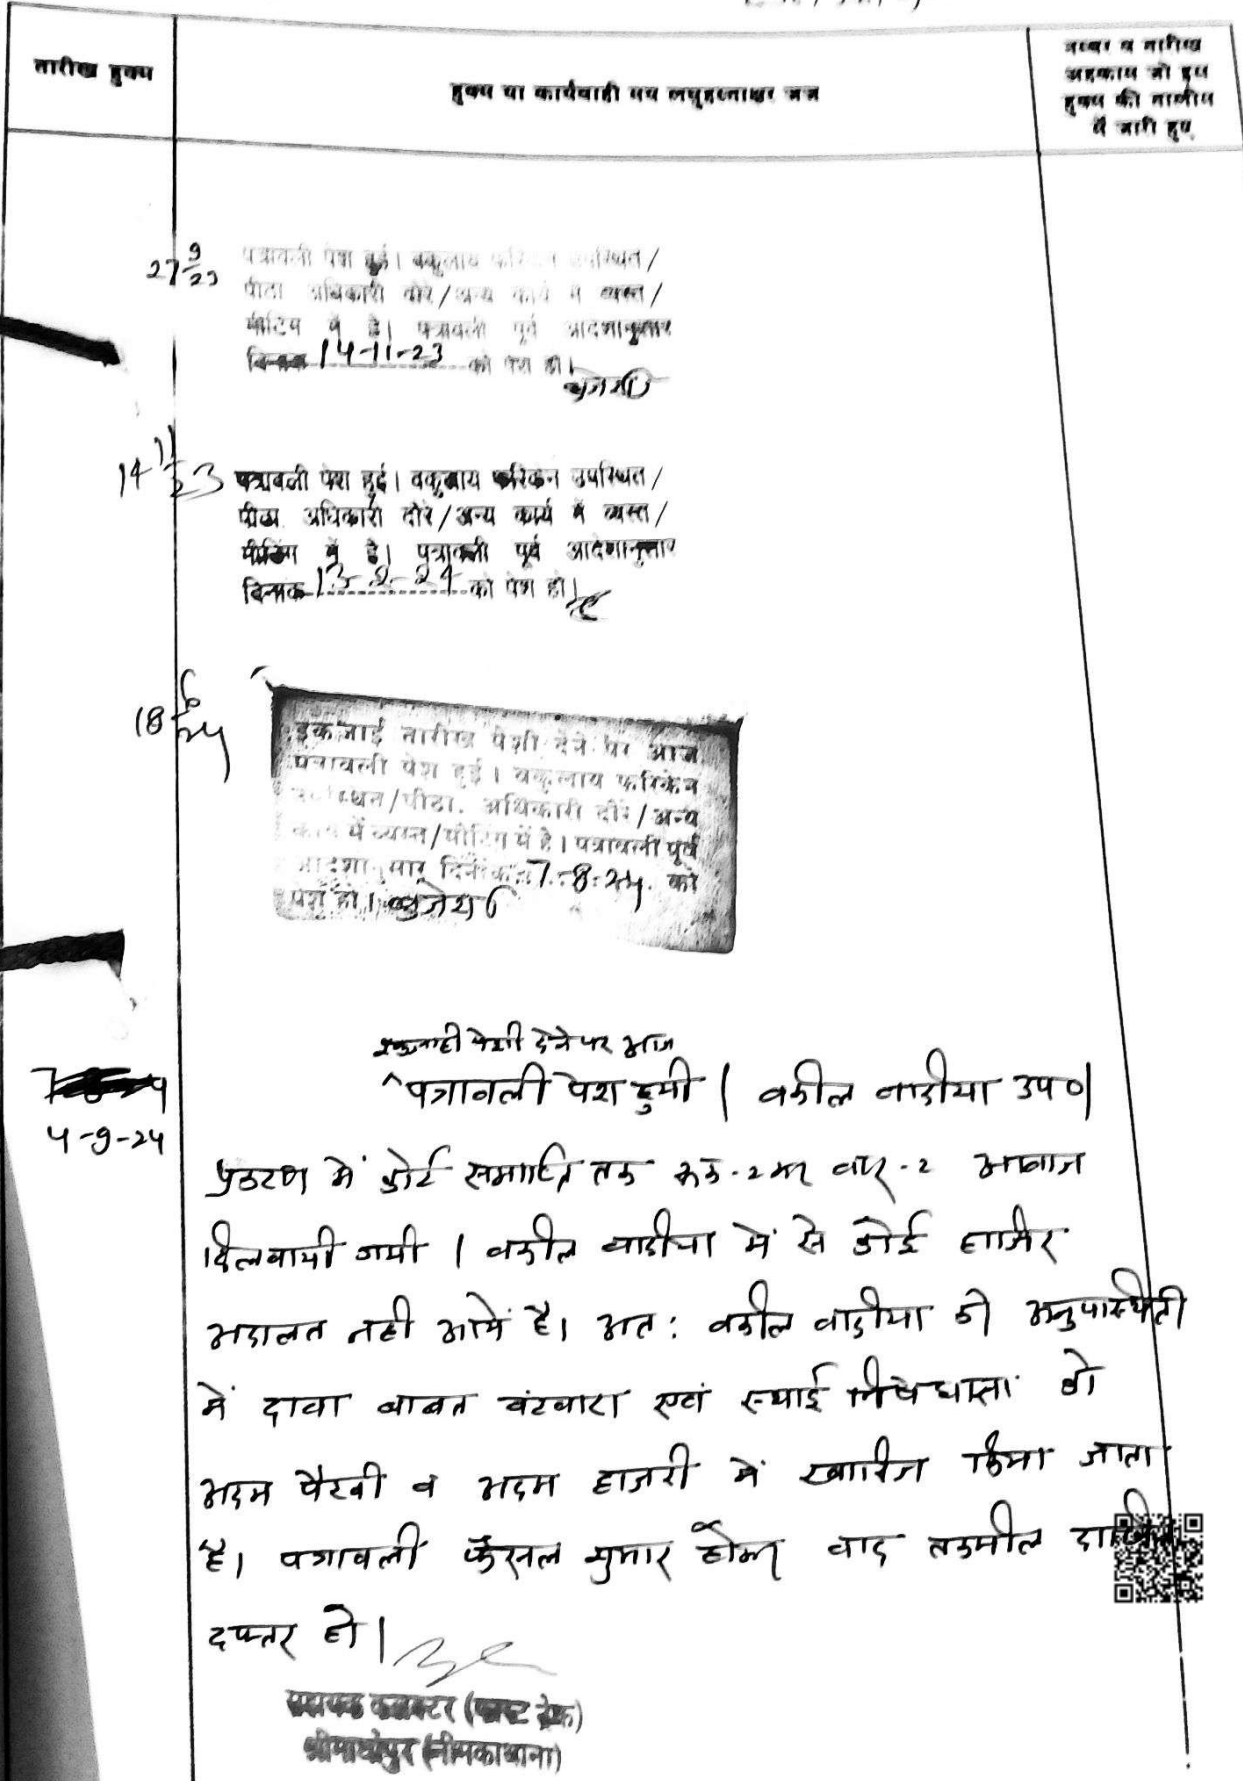 तारीख हुक्म
हुक्म या कार्यवाही मय लघुहस्ताक्षर जज
नम्बर व तारीख
अहकाम जो इस
हुक्म की तामील
में जारी हुए
27 9/23
पत्रावली पेश हुई। वकुलाय फरिकेन उपस्थित/
पीठा अधिकारी दौरे/अन्य कार्य में व्यस्त/
मीटिंग में है। पत्रावली पूर्व आदेशानुसार
दिनांक 14-11-23 को पेश हो।
14 11/23
पत्रावली पेश हुई। वकुलाय फरिकेन उपस्थित/
पीठा. अधिकारी दौरे/अन्य कार्य में व्यस्त/
मीटिंग में है। पत्रावली पूर्व आदेशानुसार
दिनांक 13-2-24 को पेश हो।
18 6/24
इकजाई तारीख पेशी देने पर आज
पत्रावली पेश हुई। वकुलाय फरिकेन
उपस्थित/पीठा. अधिकारी दौरे/अन्य
कार्य में व्यस्त/मीटिंग में है। पत्रावली पूर्व
आदेशानुसार दिनांक 7-8-24 को
पेश हो।
पेशी देने पर आज
4-9-24
पत्रावली पेश हुयी | वकील वादीया उप०|
प्रकरण में कोर्ट समाप्ति तक रूक-2 कर बार-2 आवाज
दिलवायी गयी | वकील वादीया में से कोई हाजिर
अदालत नही आये है। अत: वकील वादीया की अनुपास्थिती
में दावा बाबत बंटवारा एवं स्थाई निषेधाज्ञा को
अदम पैरवी व अदम हाजरी में खारिज किया जाता
है। पत्रावली फैसल शुमार होकर बाद तकमील दाखिल
दफ्तर हो |
सहायक कलक्टर (फास्ट ट्रेक)
श्रीमाधोपुर (नीमकाथाना)